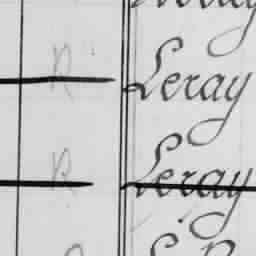 R Leray
R Leray